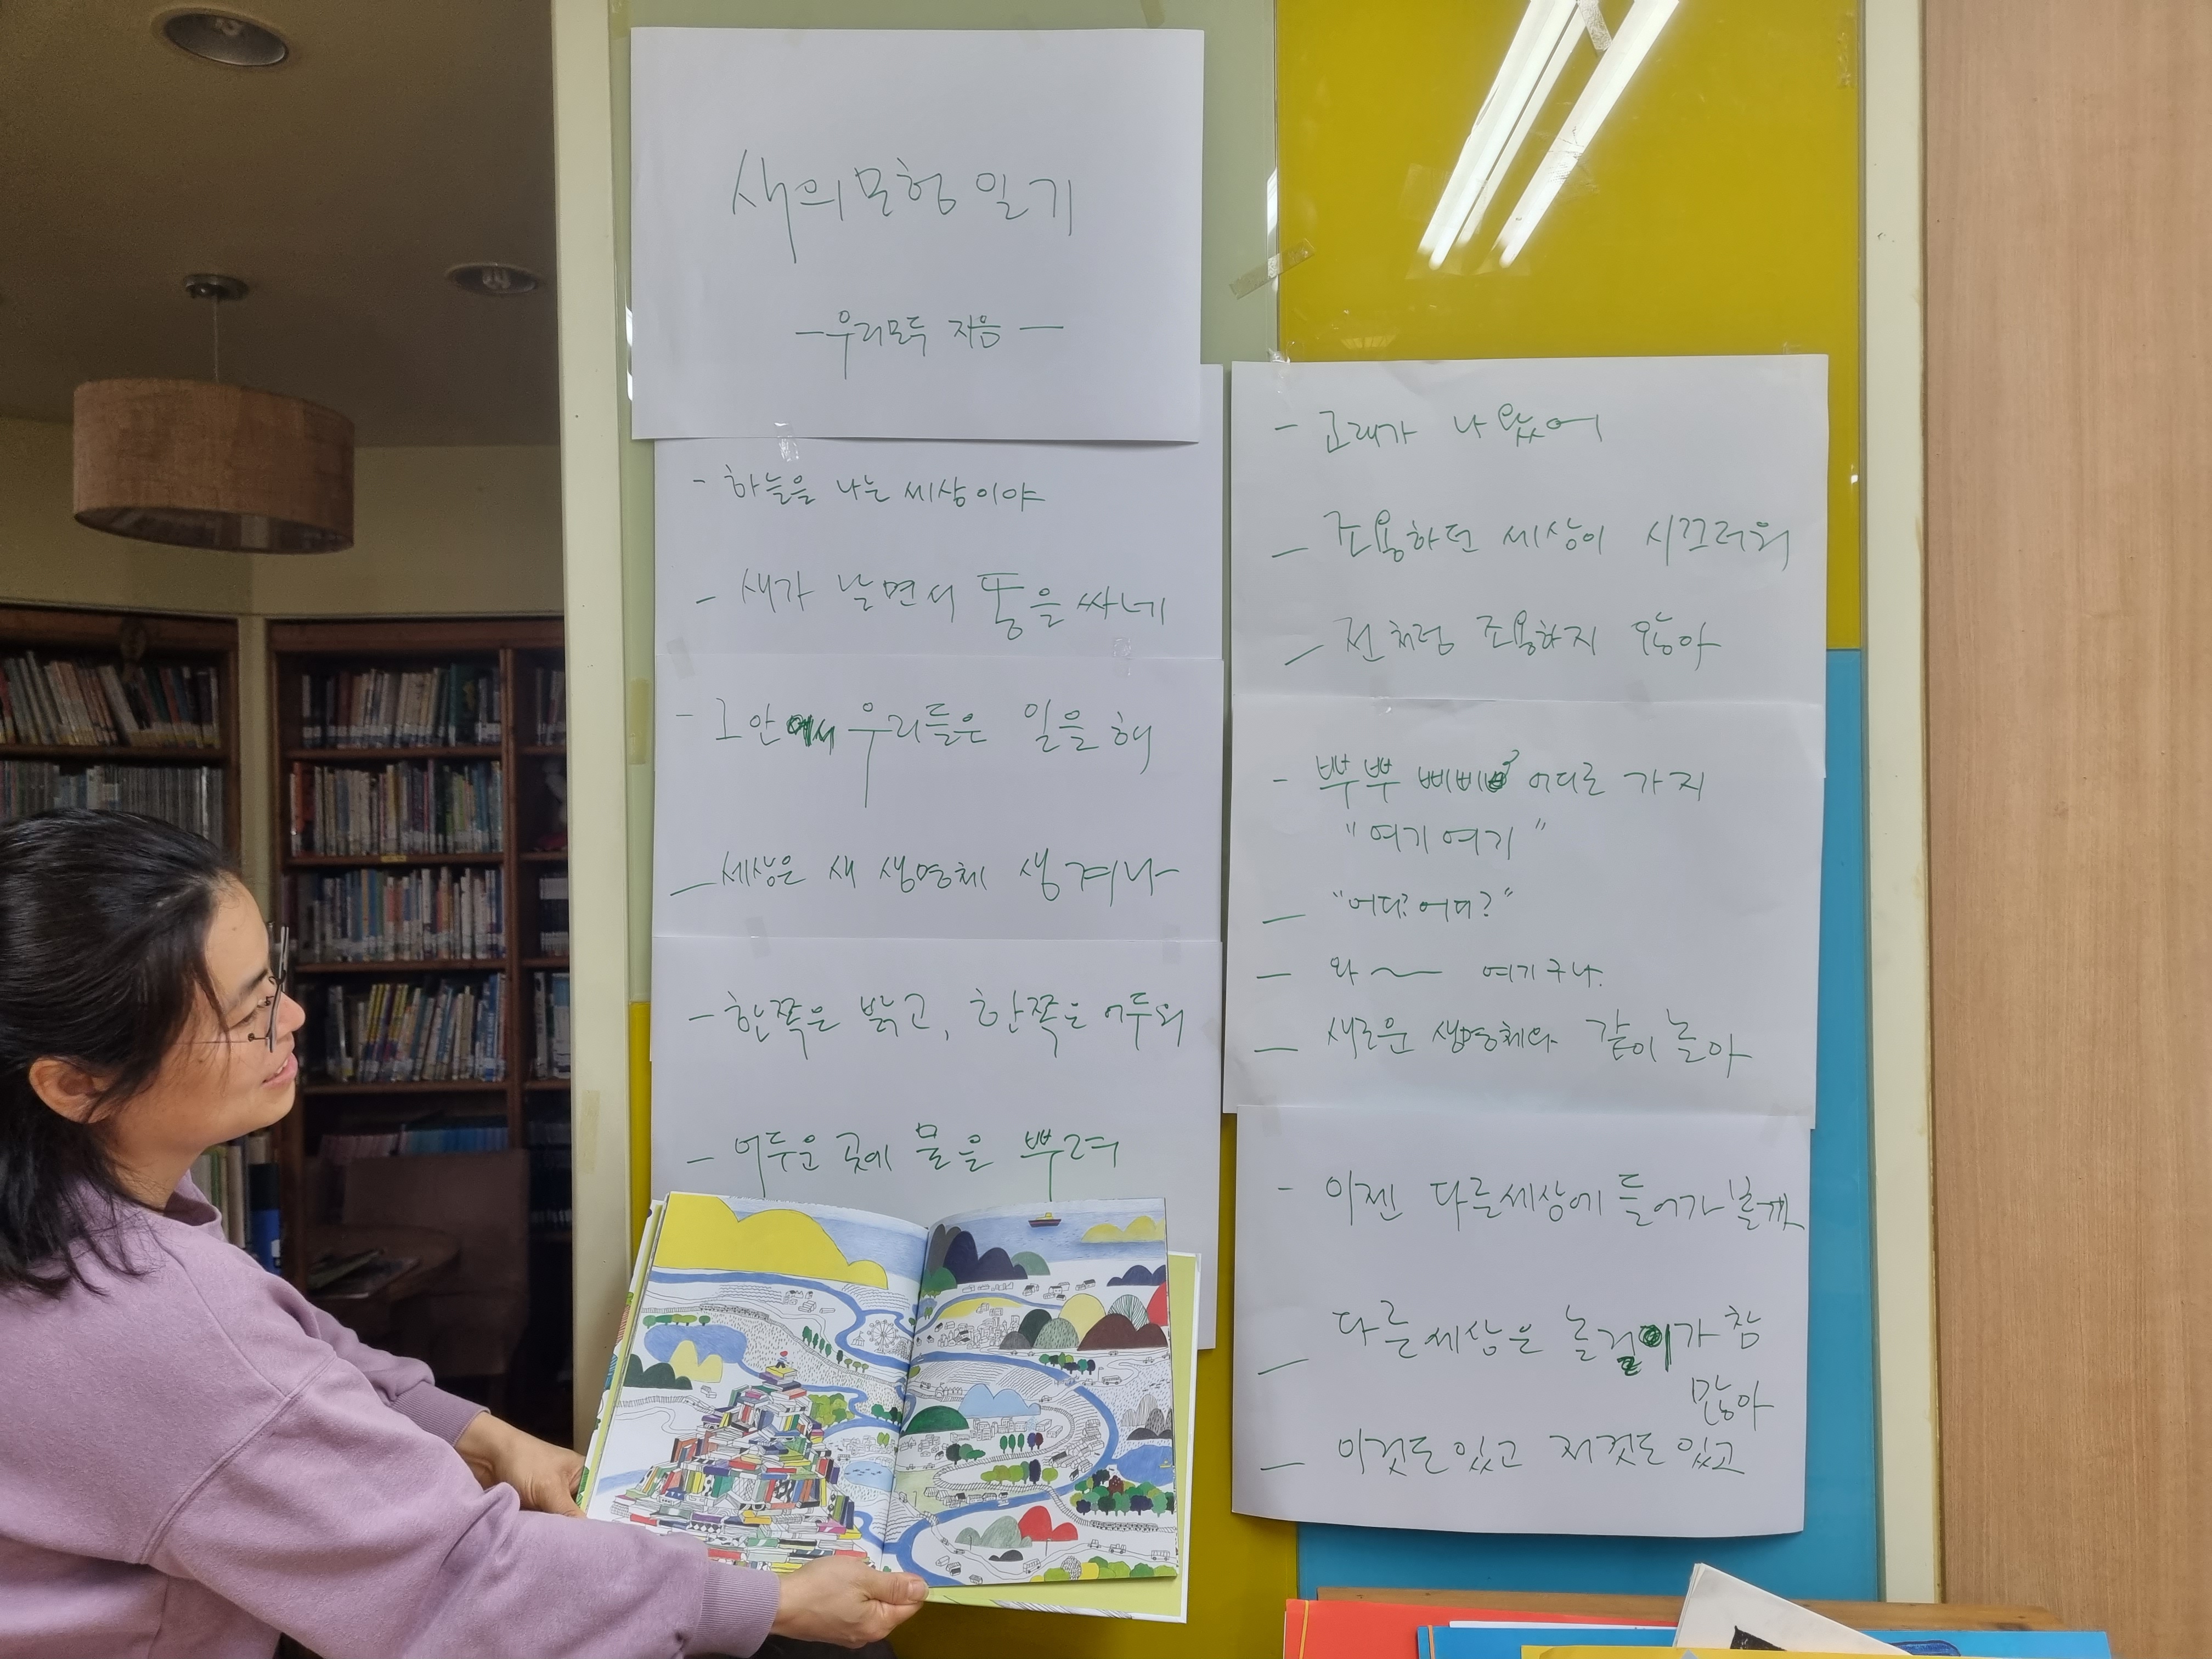 새의 모험 일기
- 우리모두 지음 -
- 하늘을 나는 세상이야
- 새가 날면서 똥을 싸네
- 그 안에서 우리들은 일을 해
- 세상은 새 생명체 생겨나
- 한쪽은 밝고, 한쪽은 어두워
- 어두운 곳에 물을 뿌려
- 고래가 나왔어
- 조용하던 세상이 시끄러워
- 전처럼 조용하지 않아
- 뿌뿌 삐삐 어디로 가지
"여기 여기"
- "어디? 어디?"
- 와~ 여기구나.
- 새로운 생명체와 같이 놀아
- 이젠 다른세상에 들어가 볼게
- 다른세상은 놀거리가 참
많아
- 이것도 있고 저것도 있고